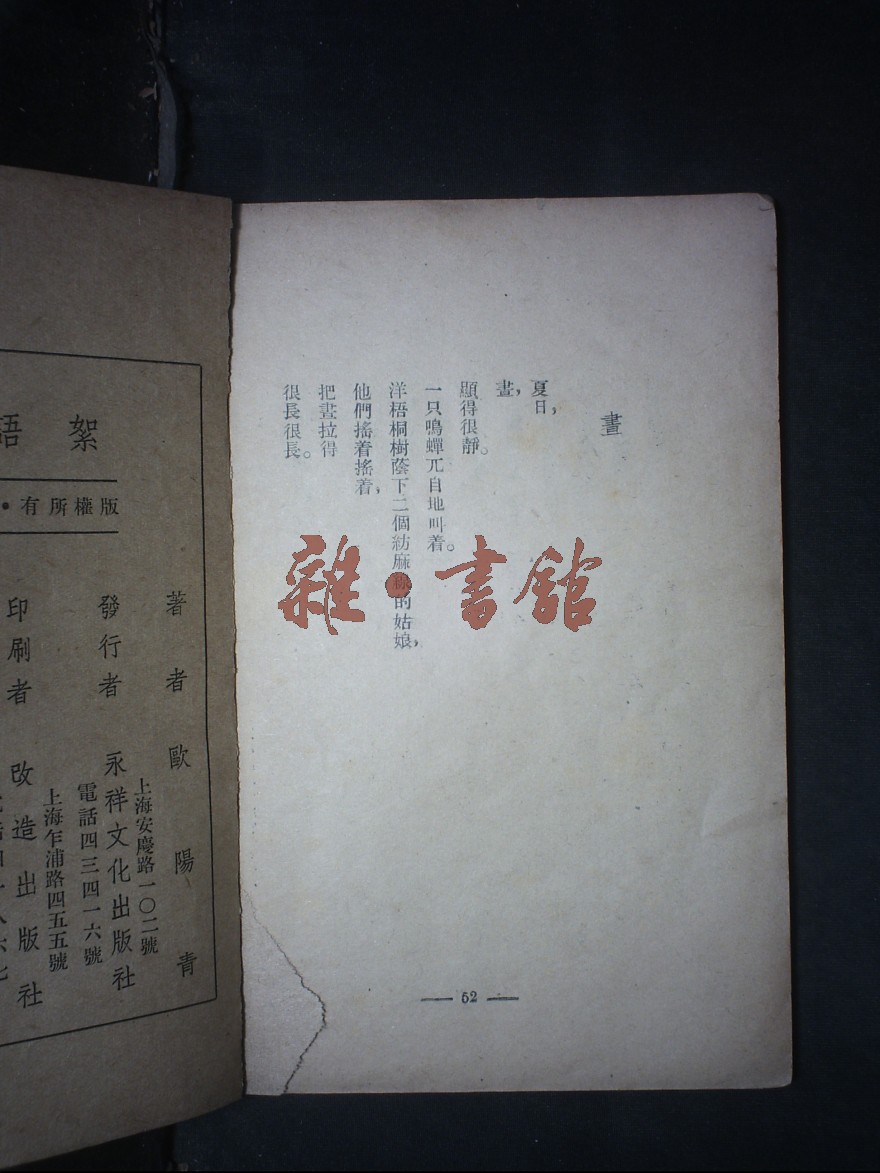 晝
夏日,
晝,
顯得很靜。
一只鳴蟬兀自地叫着。
洋梧桐樹蔭下二個紡麻的姑娘,
他們搖着搖着,
把晝拉得
很長很長。
— 52 —
雜·書館
絮語
版權所有・
著者 歐陽青
上海安慶路一〇二號
發行者 永祥文化出版社
電話四三四一六號
上海乍浦路四五五號
印刷者 改造出版社